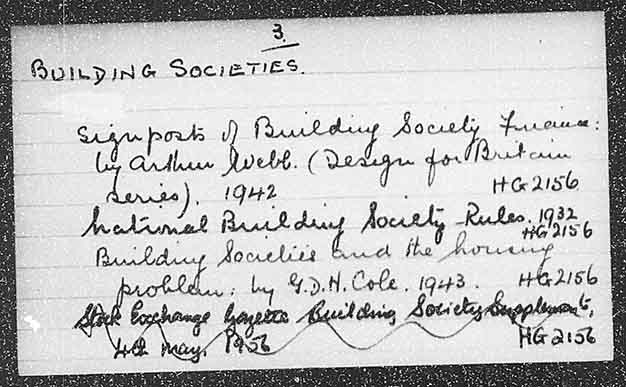 3.
BUILDING SOCIETIES.
Signposts of Building Society Finance:
by Arthur Webb. (Design for Britain
series). 1942 HG2156
National Building Society Rules. 1932
HG2156
Building Societies and the housing
problem: by G.D.H. Cole. 1943. HG2156
Stock Exchange Gazette Building Society Supplement,
4th May, 1956 HG2156